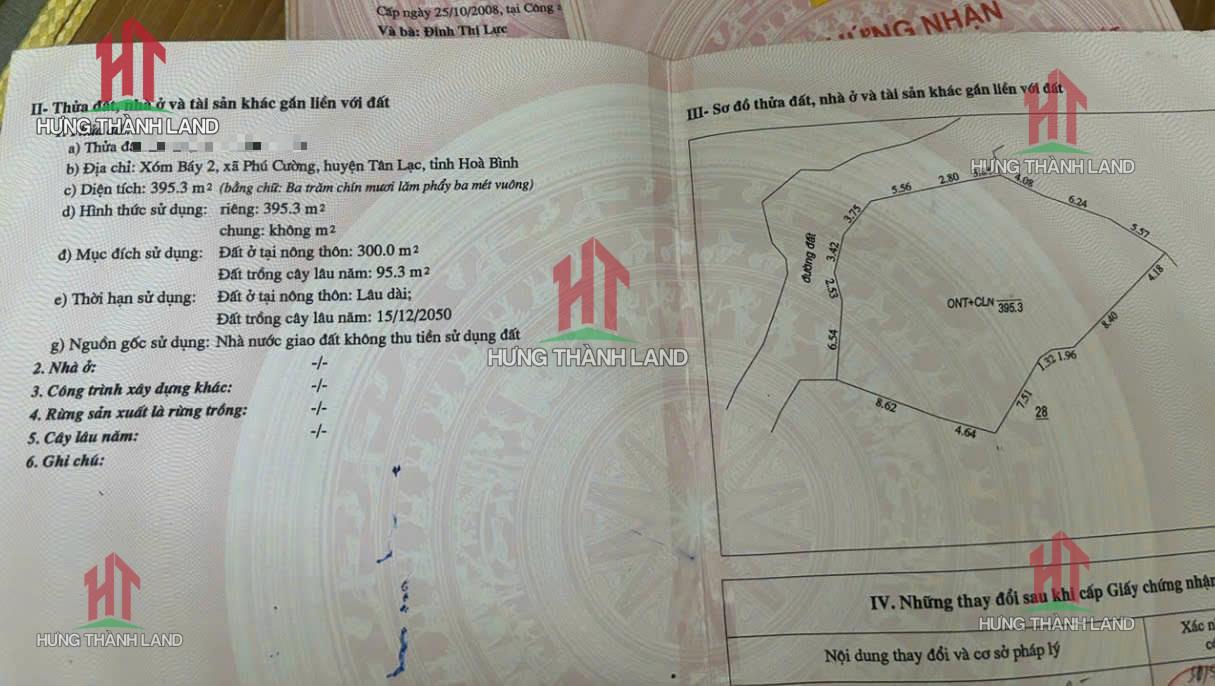 Cấp ngày 25/10/2008, tại Công a
Và bà: Đinh Thị Lực
CHỨNG NHẬN
II- Thửa đất, nhà ở và tài sản khác gắn liền với đất
a) Thửa đấ
b) Địa chỉ: Xóm Bảy 2, xã Phú Cường, huyện Tân Lạc, tỉnh Hoà Bình
c) Diện tích: 395.3 m² (bằng chữ: Ba trăm chín mươi lăm phẩy ba mét vuông)
d) Hình thức sử dụng: riêng: 395.3 m²
chung: không m²
đ) Mục đích sử dụng: Đất ở tại nông thôn: 300.0 m²
Đất trồng cây lâu năm: 95.3 m²
e) Thời hạn sử dụng: Đất ở tại nông thôn: Lâu dài;
Đất trồng cây lâu năm: 15/12/2050
g) Nguồn gốc sử dụng: Nhà nước giao đất không thu tiền sử dụng đất
2. Nhà ở: -/-
3. Công trình xây dựng khác: -/-
4. Rừng sản xuất là rừng trồng: -/-
5. Cây lâu năm: -/-
6. Ghi chú:
III- Sơ đồ thửa đất, nhà ở và tài sản khác gắn liền với đất
đường đất
5.56
2.80
4.08
6.24
5.57
4.18
8.40
1.96
1.32
7.51
4.64
8.62
6.54
2.53
3.42
3.75
ONT+CLN 395.3
28
IV. Những thay đổi sau khi cấp Giấy chứng nhận
Nội dung thay đổi và cơ sở pháp lý
Xác n
HT
HƯNG THÀNH LAND
HT
HƯNG THÀNH LAND
HT
HƯNG THÀNH LAND
HT
HƯNG THÀNH LAND
HT
HƯNG THÀNH LAND